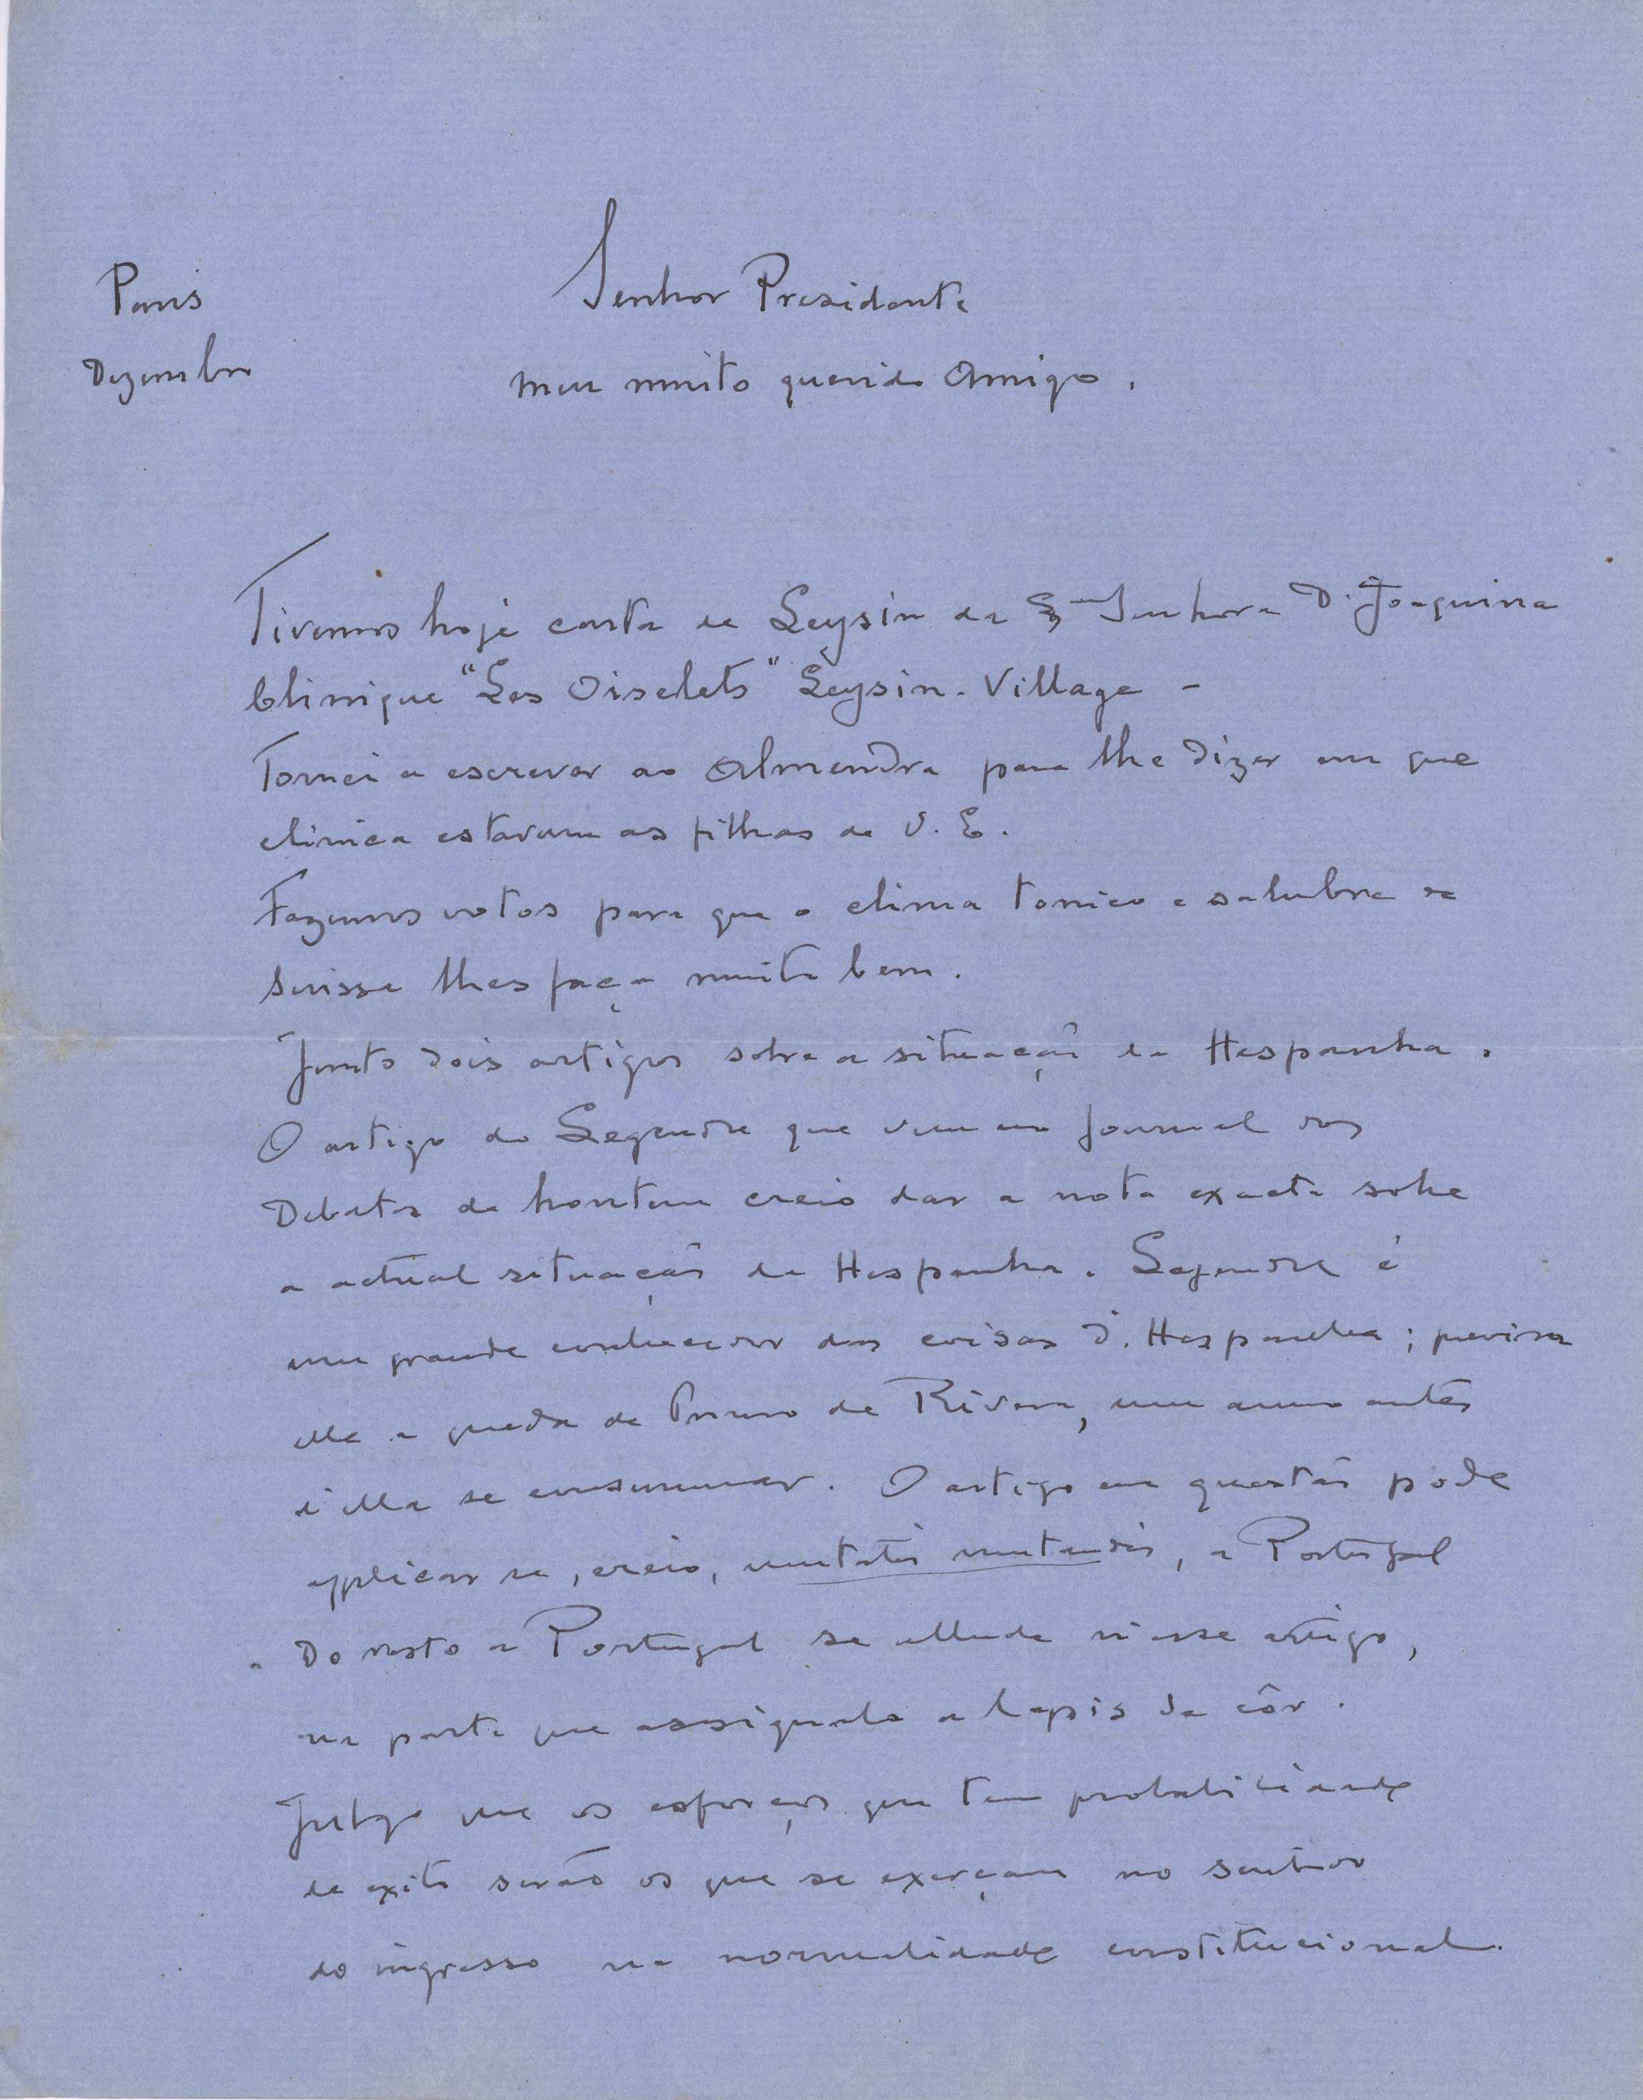 Paris
Dezembro
Senhor Presidente
meu muito querido Amigo.
Tivemos hoje carta de Leysin da Senhora D. Joaquina
Clinique "Les Oiselets" Leysin-Village -
Tornei a escrever ao Almendra para lhe dizer em que
clinica estavam as filhas de V. E.
Fazemos votos para que o clima tonico e salubre da
Suissa lhes faça muito bem.
Junto dois artigos sobre a situação da Hespanha.
O artigo do Legendre que vem no Journal dos
Debates de hontem creio dar a nota exacta sobre
a actual situação da Hespanha. Legendre é
um grande conhecedor das coisas d'Hespanha; previra
elle a queda de Primo de Rivera, um anno antes
d'ella se consummar. O artigo em questão pode
applicar se, creio, mutatis mutandis, a Portugal
Do resto a Portugal se allude n'esse artigo,
na parte que assignalo a lapis de côr.
Julgo que os esforços que tem probabilidade
de exito serão os que se exerçam no sentido
do ingresso na normalidade constitucional.